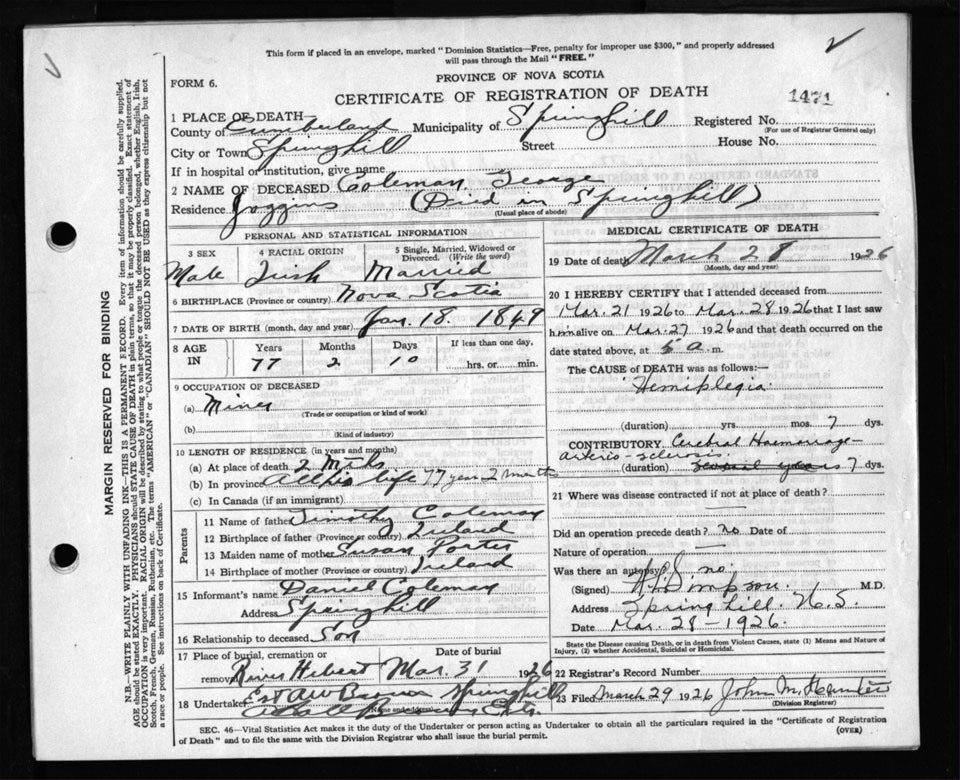 This form if placed in an envelope, marked "Dominion Statistics—Free, penalty for improper use $300," and properly addressed
will pass through the Mail "FREE."
PROVINCE OF NOVA SCOTIA
FORM 6.
CERTIFICATE OF REGISTRATION OF DEATH
1471
1 PLACE OF DEATH—
County of Cumberland Municipality of Springhill Registered No.
(For use of Registrar General only)
City or Town Springhill Street House No.
If in hospital or institution, give name
2 NAME OF DECEASED Coleman, George
Residence Joggins (Died in Springhill)
(Usual place of abode)
PERSONAL AND STATISTICAL INFORMATION
3 SEX 4 RACIAL ORIGIN 5 Single, Married, Widowed or
Divorced. (Write the word)
Male Irish Married
6 BIRTHPLACE (Province or country) Nova Scotia
7 DATE OF BIRTH (month, day and year) Jan. 18. 1849
8 AGE IN Years Months Days If less than one day,
77 2 10 hrs. or min.
9 OCCUPATION OF DECEASED
(a) Miner
(Trade or occupation or kind of work)
(b)
(Kind of industry)
10 LENGTH OF RESIDENCE (in years and months)
(a) At place of death 2 Mths
(b) In province All his life 77 year 2 months
(c) In Canada (if an immigrant)
Parents
11 Name of father Timothy Coleman
12 Birthplace of father (Province or country) Ireland
13 Maiden name of mother Susan Porter
14 Birthplace of mother (Province or country) Ireland
15 Informant's name Daniel Coleman
Address Springhill
16 Relationship to deceased Son
17 Place of burial, cremation or Date of burial
removal River Hebert Mar. 31 1926
18 Undertaker Est AW Brown Springhill
MEDICAL CERTIFICATE OF DEATH
19 Date of death March 28 1926
(Month, day and year)
20 I HEREBY CERTIFY that I attended deceased from
Mar. 21 1926 to Mar. 28 1926 that I last saw
him alive on Mar. 27 1926 and that death occurred on the
date stated above, at 5 a. m.
The CAUSE of DEATH was as follows:—
Hemiplegia
(duration) yrs. mos. 7 dys.
CONTRIBUTORY Cerebral Haemorrage-
arterio-sclerosis
(duration) several years 7 dys.
21 Where was disease contracted if not at place of death?
Did an operation precede death? no Date of
Nature of operation
Was there an autopsy? no.
(Signed) Simpson. M.D.
Address Springhill. N.S
Date Mar. 28-1926.
State the Disease causing Death, or in Death from Violent Causes, state (1) Means and Nature of
Injury, (2) whether Accidental, Suicidal or Homicidal.
22 Registrar's Record Number
23 Filed March 29 1926 John M. Hunter
(Division Registrar)
SEC. 46—Vital Statistics Act makes it the duty of the Undertaker or person acting as Undertaker to obtain all the particulars required in the "Certificate of Registration
of Death" and to file the same with the Division Registrar who shall issue the burial permit.
(OVER)
MARGIN RESERVED FOR BINDING
N.B.—WRITE PLAINLY WITH UNFADING INK—THIS IS A PERMANENT RECORD. Every item of information should be carefully supplied.
AGE should be stated EXACTLY. PHYSICIANS should STATE CAUSE OF DEATH in plain terms, so that it may be properly classified. Exact statement of
OCCUPATION is very important. RACIAL ORIGIN will be described by stating to what people or tongue the deceased person belonged, whether English, Irish,
Scotch, French, German, Russian, Ruthenian, etc. The terms "AMERICAN" or "CANADIAN" SHOULD NOT BE USED as they express citizenship but not
a race or people. See instructions on back of Certificate.